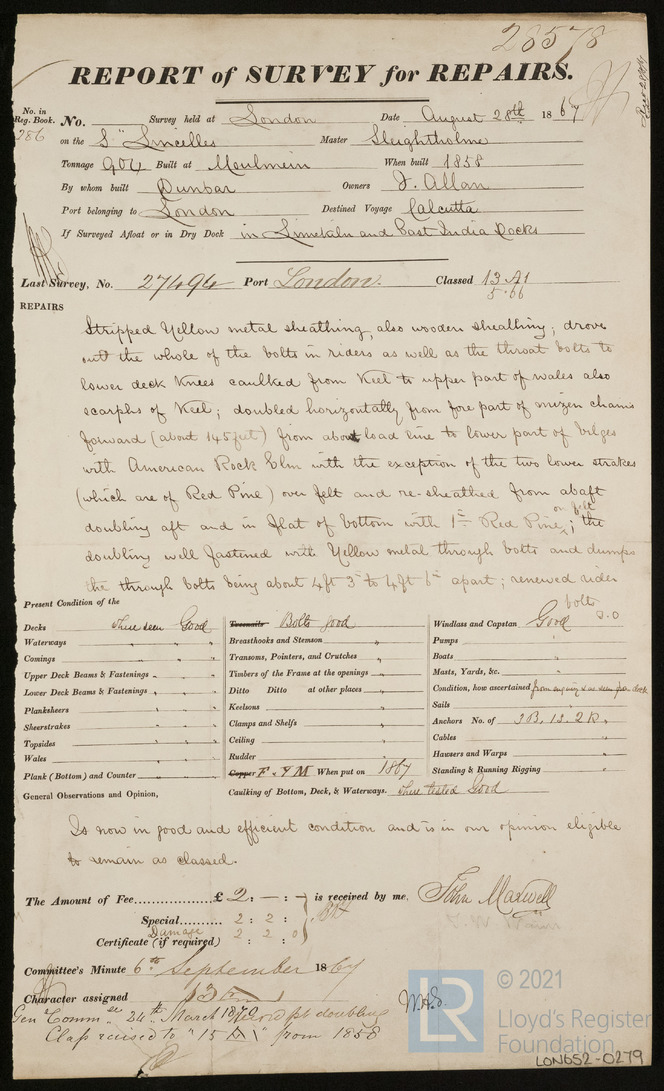 28578
REPORT of SURVEY for REPAIRS.
No. in Reg. Book. No. Survey held at London Date August 28th 1867
286 on the S" Lincelles Master Sleightholme
Tonnage 904 Built at Moulmein When built 1858
By whom built Dunbar Owners J. Allan
Port belonging to London Destined Voyage Calcutta
If Surveyed Afloat or in Dry Dock in Limekiln and East India Docks
Last Survey, No. 27494 Port London. Classed 13 A1
5.66
REPAIRS
Stripped Yellow metal sheathing, also wooden sheathing; drove
out the whole of the bolts in riders as well as the throat bolts to
lower deck Knees caulked from Keel to upper part of wales also
scarphs of Keel; doubled horizontally from fore part of mizen chains
forward (about 145 feet) from about load line to lower part of bilges
with American Rock Elm with the exception of the two lower strakes
(which are of Red Pine) over felt and re-sheathed from abaft
doubling aft and in flat of bottom with 1" Red Pine on felt; the
doubling well fastened with Yellow metal through bolts and dumps
the through bolts being about 4ft 3" to 4ft 6" apart; renewed rider
bolts
Present Condition of the
Decks where seen Good
Waterways " " "
Comings " " "
Upper Deck Beams & Fastenings " " "
Lower Deck Beams & Fastenings " " "
Planksheers " " "
Sheerstrakes " " "
Topsides " " "
Wales " " "
Plank (Bottom) and Counter " " "
General Observations and Opinion,
Treenails Bolts good
Breasthooks and Stemson "
Transoms, Pointers, and Crutches "
Timbers of the Frame at the openings "
Ditto Ditto at other places "
Keelsons "
Clamps and Shelfs "
Ceiling "
Rudder "
Copper F. & Y M When put on 1867
Caulking of Bottom, Deck, & Waterways. where tested Good
Windlass and Capstan Good
Pumps "
Boats "
Masts, Yards, &c. "
Condition, how ascertained from enquiry & as seen from deck
Sails "
Anchors No. of 3B, 1S, 2K "
Cables "
Hawsers and Warps "
Standing & Running Rigging "
Is now in good and efficient condition and is in our opinion eligible
to remain as classed.
The Amount of Fee £ 2 : – : – is received by me, John Maxwell
Special 2 : 2 :
Damage
Certificate (if required) 2 2 : 0
Committee's Minute 6th September 1867
Character assigned
Genl Commee 24th March 1870 doubling
Class raised to "15 A1" from 1858
W.H.S.
LR
© 2021
Lloyd's Register
Foundation
LON652-0279